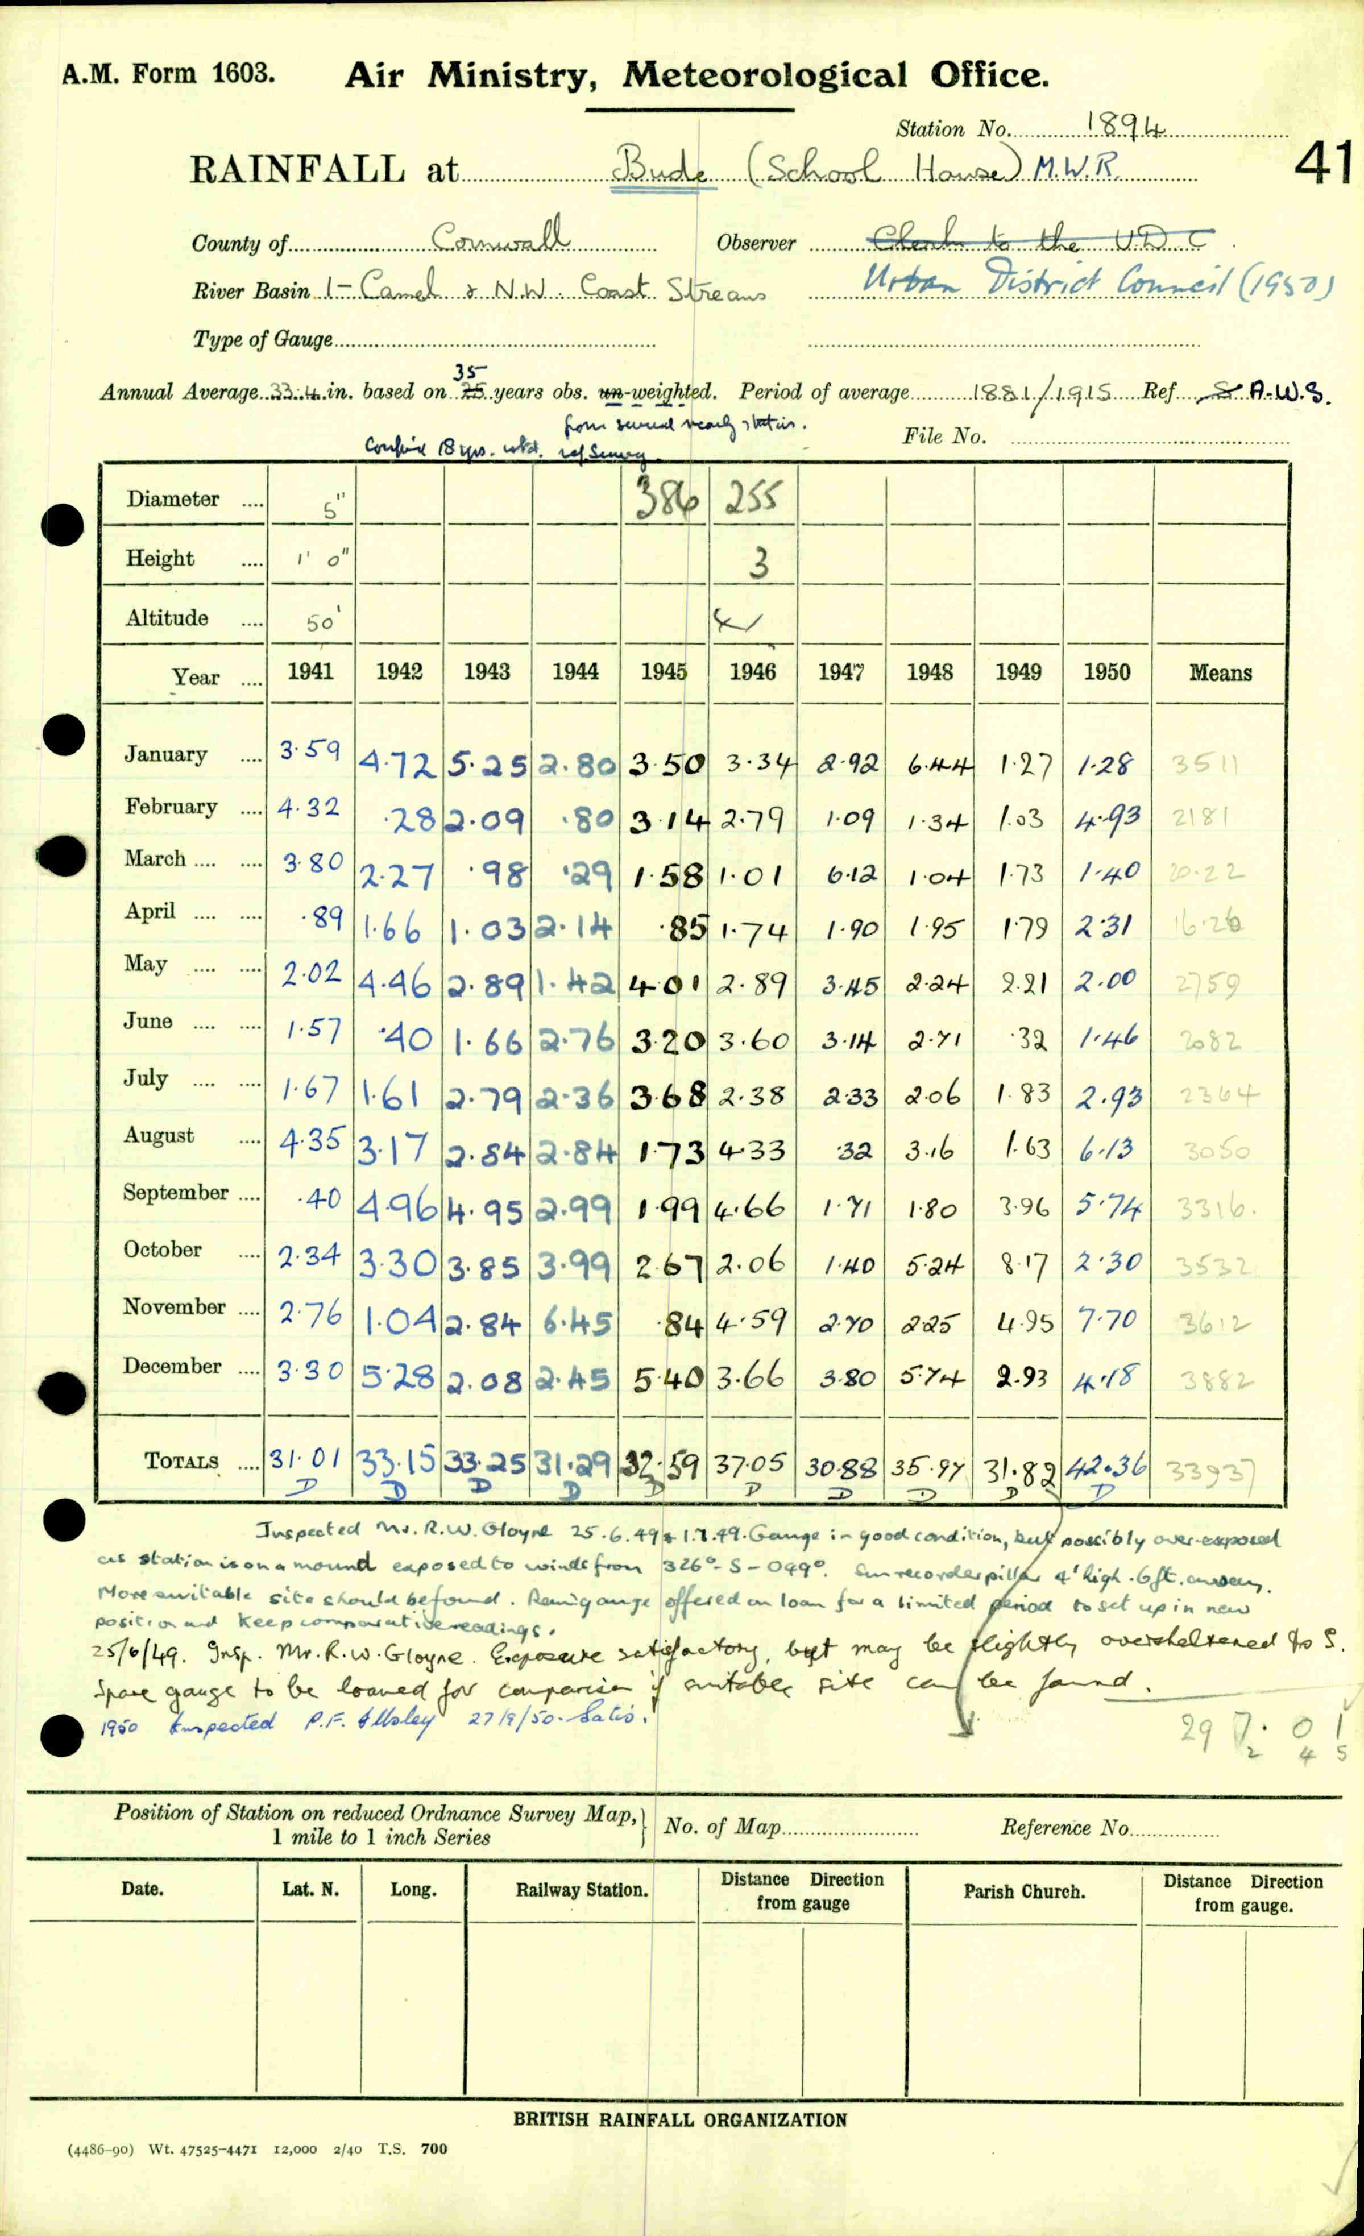 A.M. Form 1603. Air Ministry, Meteorological Office.
Station No. 1894
RAINFALL at Bude (School House) M.W.R. 41
County of Cornwall Observer Clerk to the U.D.C.
River Basin 1- Camel & N.W. Coast Streams Urban District Council (1950)
Type of Gauge
Annual Average 33.4 in. based on 25 35 years obs. un-weighted. Period of average 1881/1915 Ref. S. A.W.S.
from several nearby stations.
File No.
18 yrs.
Diameter .... 5" 386 255
Height .... 1' 0" 3
Altitude .... 50'
Year .... 1941 1942 1943 1944 1945 1946 1947 1948 1949 1950 Means
January .... 3.59 4.72 5.25 2.80 3.50 3.34 2.92 6.44 1.27 1.28 3511
February .... 4.32 .28 2.09 .80 3.14 2.79 1.09 1.34 1.03 4.93 2181
March .... .... 3.80 2.27 .98 .29 1.58 1.01 6.12 1.04 1.73 1.40 20.22
April .... .... .89 1.66 1.03 2.14 .85 1.74 1.90 1.95 1.79 2.31 16.26
May .... .... 2.02 4.46 2.89 1.42 4.01 2.89 3.45 2.24 2.21 2.00 2759
June .... .... 1.57 .40 1.66 2.76 3.20 3.60 3.14 2.71 .32 1.46 2082
July .... .... 1.67 1.61 2.79 2.36 3.68 2.38 2.33 2.06 1.83 2.93 2364
August .... 4.35 3.17 2.84 2.84 1.73 4.33 .32 3.16 1.63 6.13 3050
September .... .40 4.96 4.95 2.99 1.99 4.66 1.71 1.80 3.96 5.74 3316.
October .... 2.34 3.30 3.85 3.99 2.67 2.06 1.40 5.24 8.17 2.30 3532
November .... 2.76 1.04 2.84 6.45 .84 4.59 2.70 2.25 4.95 7.70 3612
December .... 3.30 5.28 2.08 2.45 5.40 3.66 3.80 5.74 2.93 4.18 3882
TOTALS .... 31.01 33.15 33.25 31.29 32.59 37.05 30.88 35.97 31.82 42.36 33937
D D D D D D D D D D
Inspected Mr. R.W. Gloyne 25.6.49 & 1.7.49. Gauge in good condition, but possibly over-exposed
as station is on a mound exposed to winds from 326° - S - 099°. Sun recorder pillar 4' high. 6ft. away.
More suitable site should be found. Raingauge offered on loan for a limited period to set up in new
position and keep comparative readings.
25/6/49. Insp. Mr. R.W. Gloyne. Exposure satisfactory, but may be slightly oversheltered to S.
Spare gauge to be loaned for comparison if suitable site can be found.
1950 Inspected P.F. 27/9/50. Satis.
29 7. 0 1
2 4 5
Position of Station on reduced Ordnance Survey Map, 1 mile to 1 inch Series } No. of Map Reference No.
Date. Lat. N. Long. Railway Station. Distance Direction from gauge Parish Church. Distance Direction from gauge.
BRITISH RAINFALL ORGANIZATION
(4486-90) Wt. 47525-4471 12,000 2/40 T.S. 700